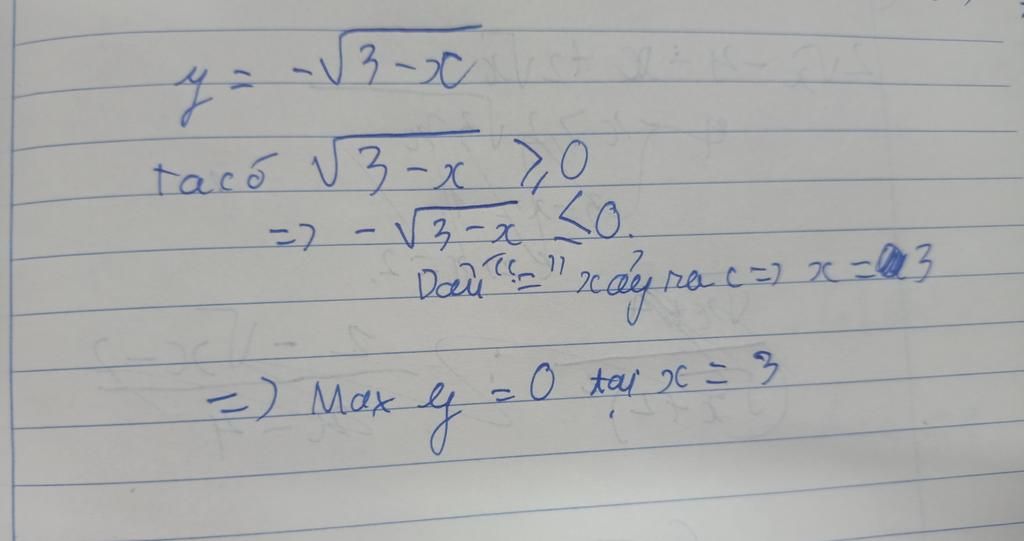 y = -√3-x
ta có √3-x ⩾ 0
=> -√3-x ≤ 0.
Dấu "=" xảy ra <=> x = 3
=> Max y = 0 tại x = 3